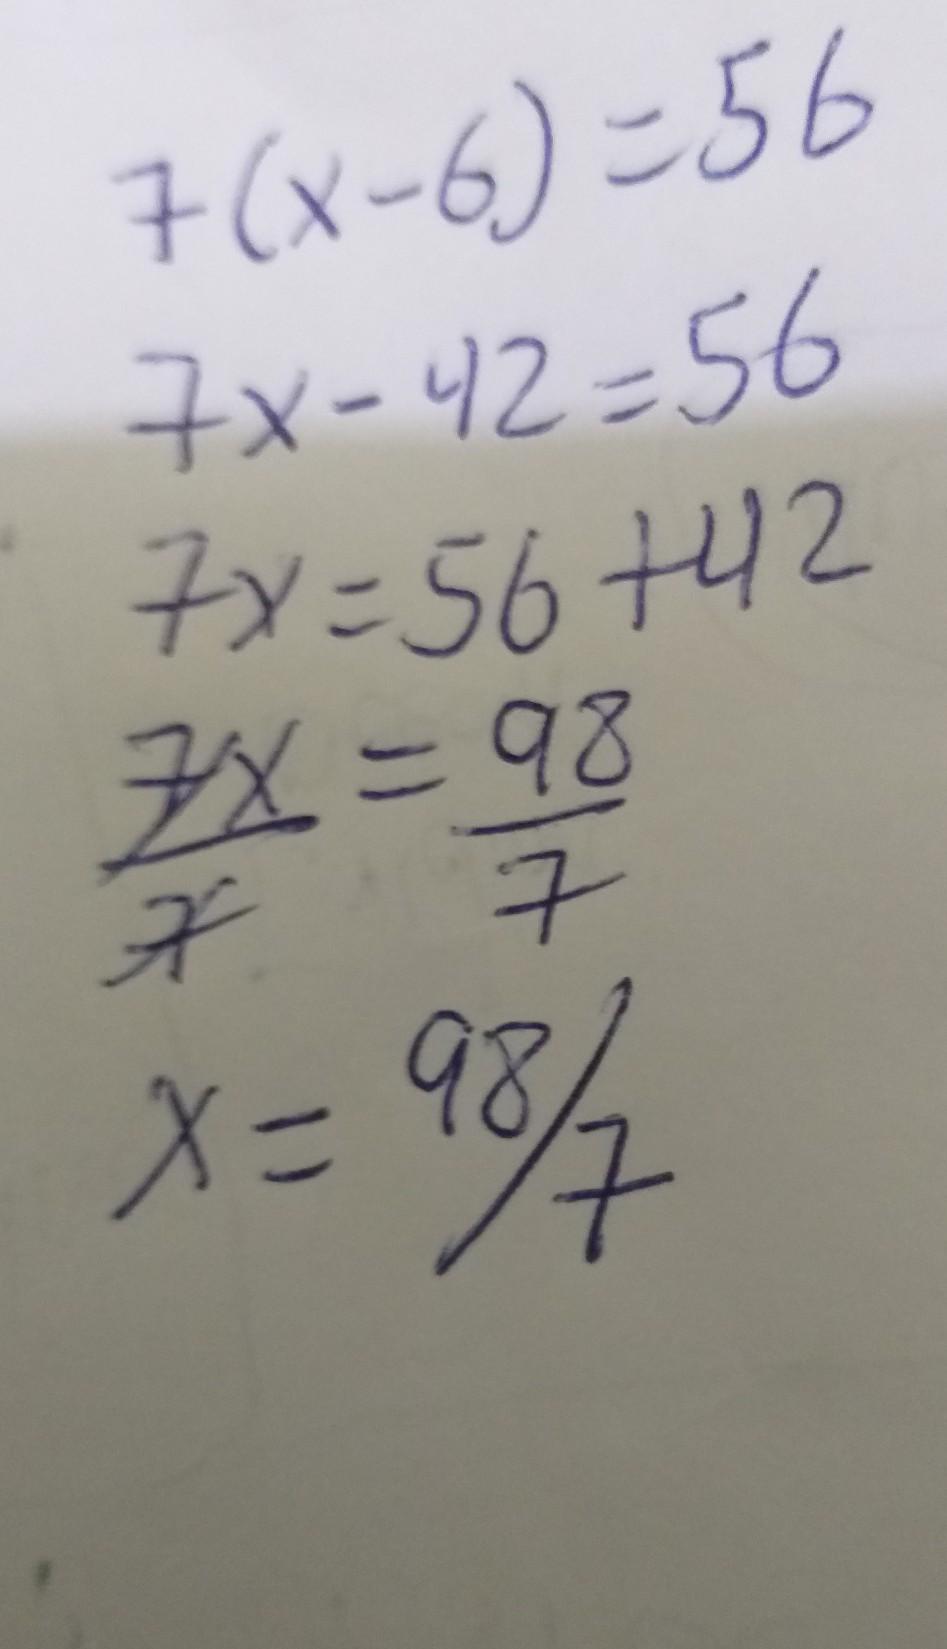 7(x-6)=56
7x-42=56
7x=56+42
7x/7=98/7
x=98/7